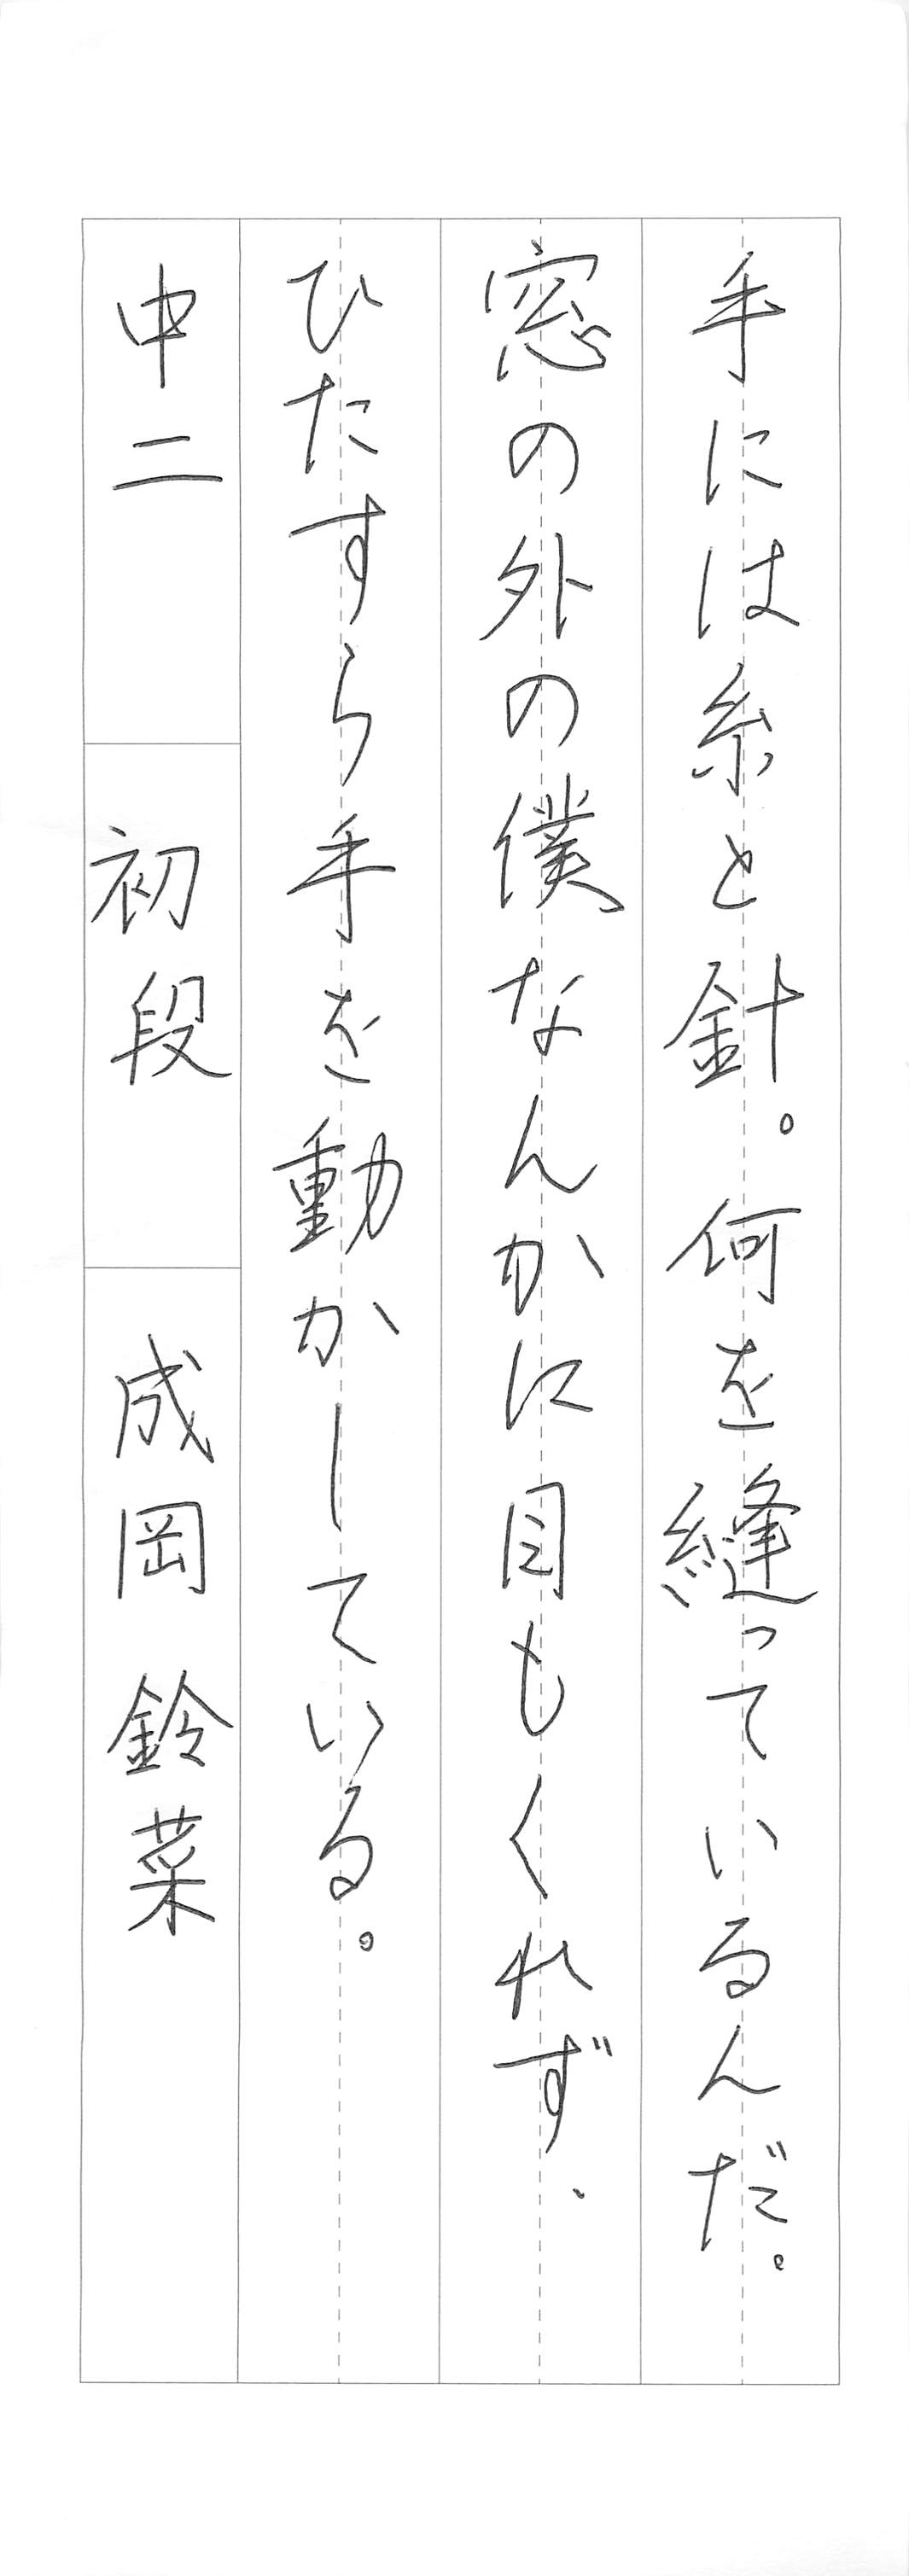 手には糸と針。何を縫っているんだ。
窓の外の僕なんかに目もくれず、
ひたすら手を動かしている。
中二 初段 成岡鈴菜